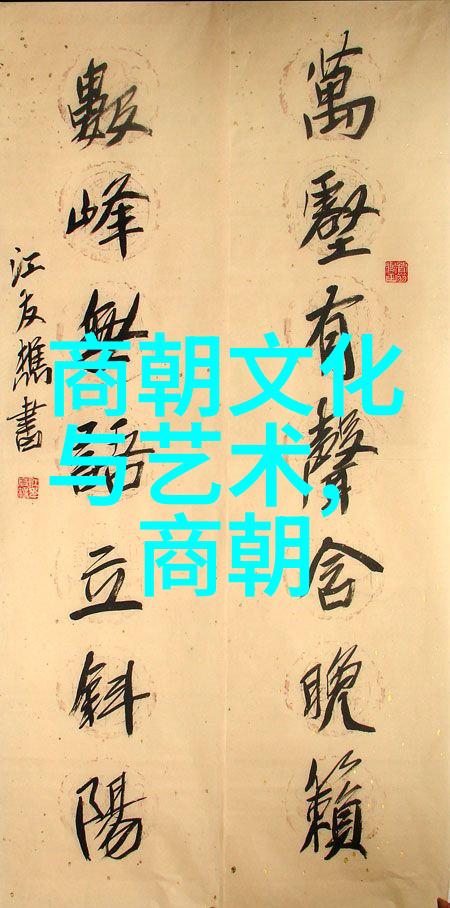 萬壑有聲含晚籟
數峰無語立斜陽
江友樵書
商朝文化
与艺术,
商朝